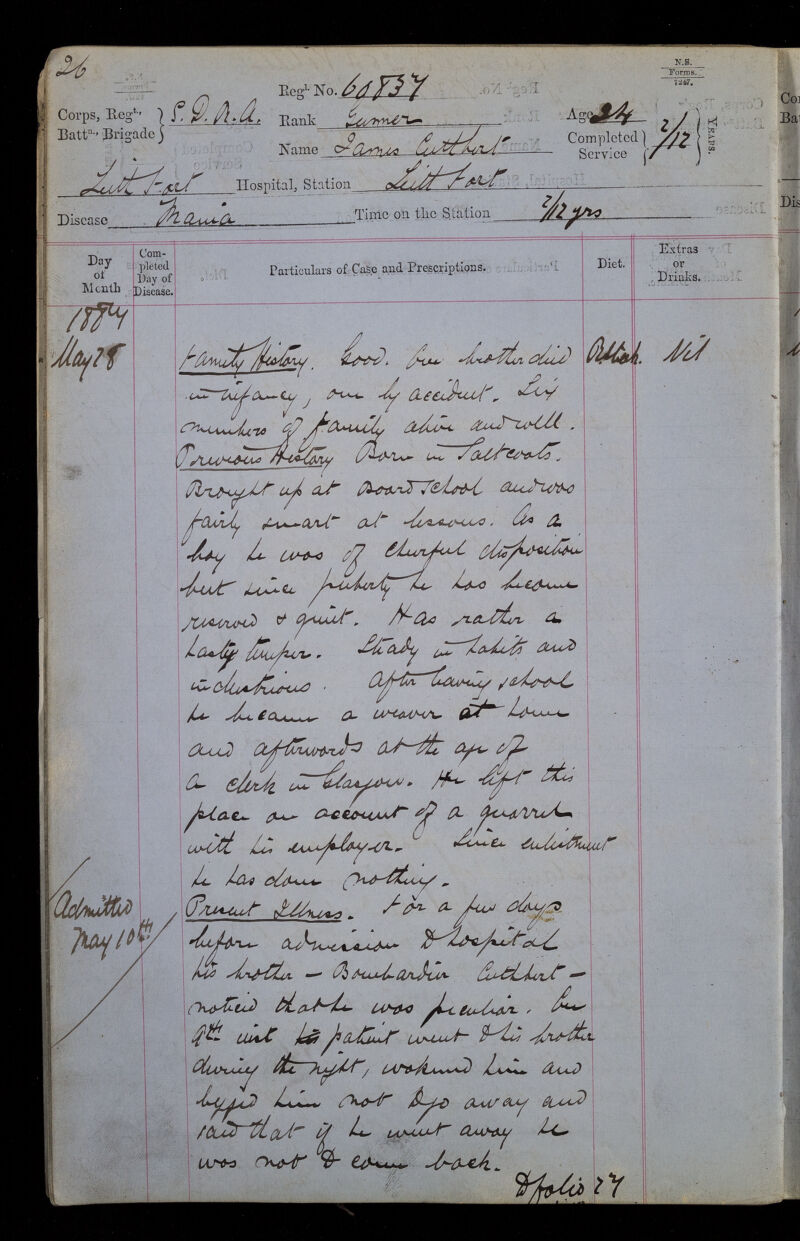 26
N.S.
Forms.
7247.
Regl. No. 60837
Corps, Regt., Battn., Brigade } S. D. R. A.
Rank Gunner
Age 24
Name James Cuthbert
Completed Service } 2/12 { YEARS.
Leith Fort Hospital, Station Leith Fort
Disease Mania Time on the Station 2/12 yrs
Day of Month
Completed Day of Disease.
Particulars of Case and Prescriptions.
Diet.
Extras or Drinks.
1884
May 28
Family History. Good. One brother died
Nil
in infancy, one by accident. Six
members of family alive and well.
Previous History Born in Saltcoats.
Brought up at Board School and was
fairly smart at lessons. As a
boy he was of cheerful disposition
but since puberty he has become
reserved & quiet. Has rather a
hasty temper. Steady in habits and
industrious. After leaving school
he became a weaver at home
and afterwards at the age of
a clerk in Glasgow. He left this
place on account of a quarrel
with his employer. Since enlistment
he has done nothing.
Admitted
May 10th
Present Illness. For a few days
before admission to hospital
his brother – Bombardier Cuthbert –
noticed that he was peculiar. On
9th inst patient went to his brother
during the night, wakened him and
begged him not to go away and
said that if he went away he
was not to come back.
To folio 27